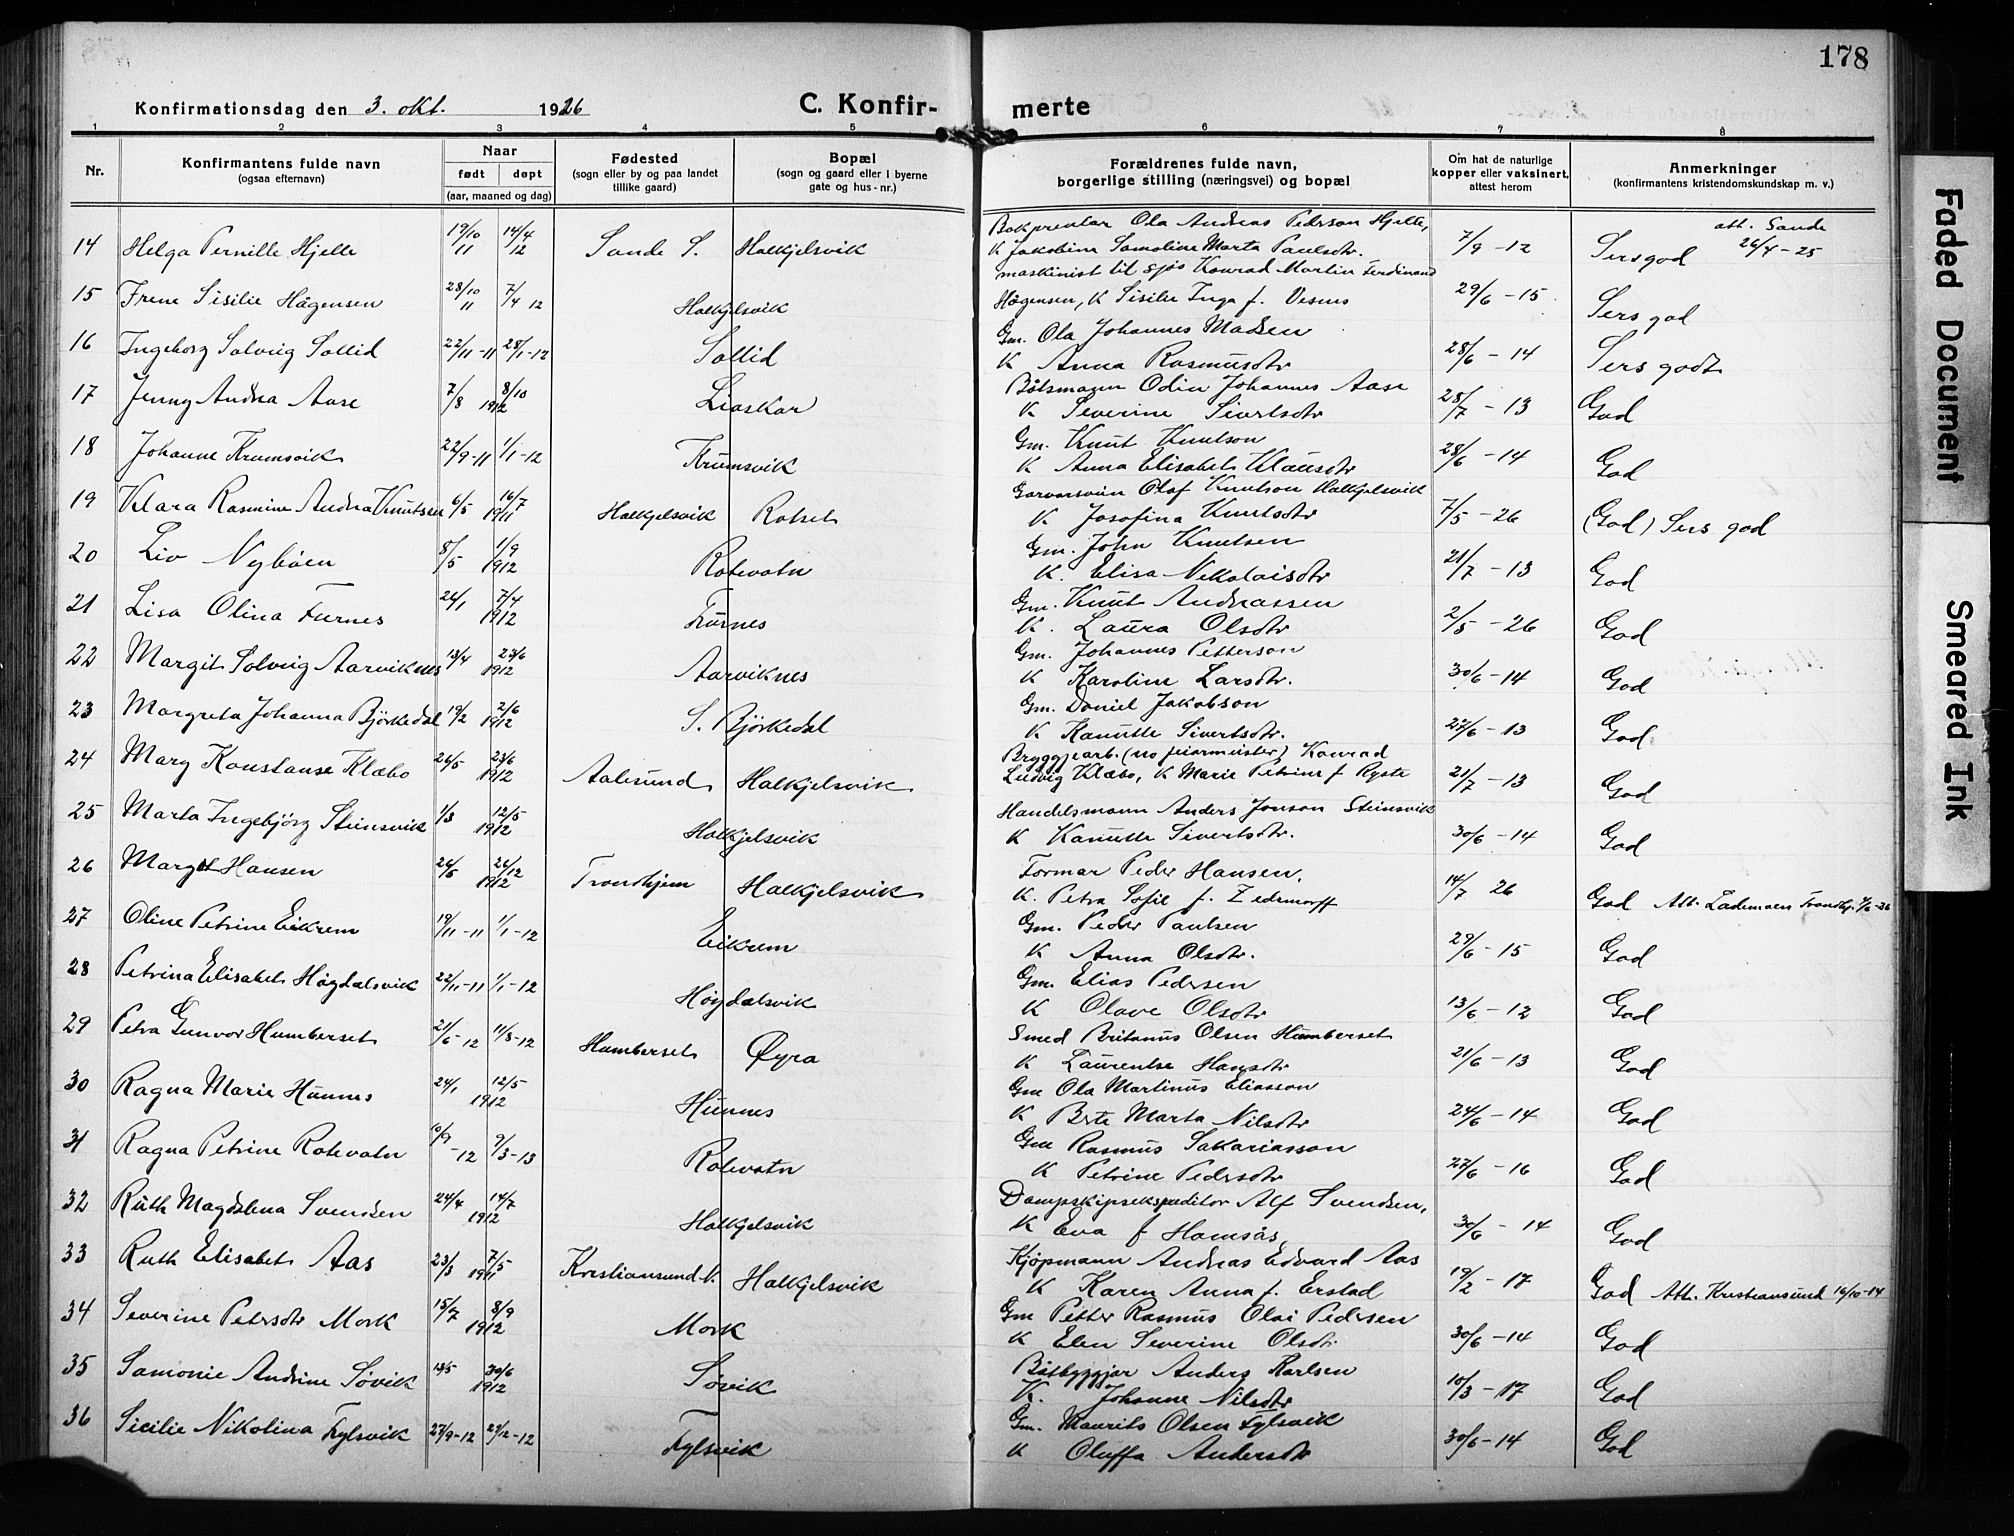 178
Konfirmationsdag den 3. okt. 1926 C. Konfir-merte
1 2 3 4 5 6 7 8
Nr.
Konfirmantens fulde navn
(ogsaa efternavn)
Naar
født døpt
(aar, maaned og dag)
Fødested
(sogn eller by og paa landet
tillike gaard)
Bopæl
(sogn og gaard eller i byerne
gate og hus-nr.)
Forældrenes fulde navn,
borgerlige stilling (næringsvei) og bopæl
Om hat de naturlige
kopper eller vaksinert,
attest herom
Anmerkninger
(konfirmantens kristendomskundskap m. v.)
14 Helga Pernille Hjelle 19/10 11 14/4 12 Sande S. Halkjelsvik Bokprentar Ola Andreas Pederson Hjelle, 7/9-12 Sers god att. Sande 26/4-25
K Jakobine Samoline Marta Paulsdtr.
15 Irene Sisilie Hågensen 28/10 11 7/4 12 Halkjelsvik maskinist til sjøs Konrad Martin Ferdinand 29/6-15 Sers god
Hågensen, K Sisilie Inga f. Vesnes
16 Ingeborg Solveig Sollid 22/11-11 28/1-12 Sollid Gm. Ola Johannes Madsen 28/6-14 Sers godt
K Anna Rasmusdtr
17 Jenny Andrea Aase 7/8 8/10 1912 Lioskar Båtsmann Odin Johannes Aase 28/7-13 God
K Severine Sivertsdtr
18 Johanne Krumsvik 22/9-11 1/1-12 Krumsvik Gm. Knut Knutson 28/6-14 God
K Anna Elisabet Klausdtr
19 Klara Rasmine Andrea Knutsen 6/5 16/7 1911 Halkjelsvik Rotset Garvarsvein Olaf Knutson Halkjelsvik 7/5-26 (God) Sers god
K Josefina Knutsdtr
20 Liv Nybøen 8/5 1/9 1912 Rotevatn Gm. John Knutsen 21/7-13 God
K. Elisa Nikolaisdtr
21 Lisa Olina Furnes 24/1 7/4 1912 Furnes Gm. Knut Andreassen 2/5-26 God
K. Laura Olsdtr
22 Margit Solveig Aarviknes 13/4 23/6 1912 Aarviknes Gm. Johannes Petterson 30/6-14 God
K Karoline Larsdtr.
23 Margreta Johanna Bjørkedal 19/2 2/6 1912 S. Bjørkedal Gm. Daniel Jakobson 27/6-13 God
K Kanutte Sivertsdtr.
24 Mary Konstanse Klæbo 26/5 23/6 1912 Aalesund Halkjelsvik Bryggjearb. (no feiarmeister) Konrad 21/7-13 God
Ludvig Klæbo, K Marie Petrine f Ryste
25 Marta Ingebjørg Steinsvik 1/3 12/5 1912 Halkjelsvik Handelsmann Anders Jonson Steinsvik 30/6-14 God
K Kanutte Sivertsdtr.
26 Margit Hansen 26/5 26/12 1912 Trondhjem Halkjelsvik Formar Peder Hansen, 14/7 26 God Att. Lademoen Trondhj.
K. Petra Sofie f.
27 Oline Petrine Eikrem 19/11-11 1/1-12 Eikrem Gm. Peder Paulsen 29/6-15 God
K Anna Olsdtr.
28 Petrina Elisabet Høgdalsvik 22/11-11 1/1-12 Høgdalsvik Gm. Elias Pedersen 13/6-12 God
K Olave Olsdtr
29 Petra Gunvor Humberset 21/6-12 11/8-12 Humberset Øyra Smed Britanus Olsen Humberset 21/6-13 God
K Laurentse Hansdtr
30 Ragna Marie Hunnes 24/1 12/5 1912 Hunnes Gm Ola Martinus Eliasson 24/6-14 God
K Brte Marta Nilsdtr
31 Ragna Petrine Rotevatn 10/9-12 9/3-13 Rotevatn Gm Rasmus Sakariasson 27/6-16 God
K Petrine Pedersdtr
32 Ruth Magdalena Svendsen 24/4 14/7 1912 Halkjelsvik Dampskipsekspeditor Alf Svendsen, 30/6-14 God
K Eva f Hamsås
33 Ruth Elisabet Aas 23/3 7/5 1911 Kristiansund N. Halkjelsvik Kjøpmann Andreas Edvard Aas 19/2-17 God Att. Kristiansund 16/10-14
K Karen Anna f. Erstad
34 Severine Petersdtr Mork 15/7 8/9 1912 Mork Gm Petter Rasmus Olai Pedersen 30/6-14 God
K Elen Severine Olsdtr
35 Samonie Andrine Søvik 13/5 30/6 1912 Søvik Båtbyggjar Anders Karlsen 10/3-17 God
K. Johanne Nilsdtr
36 Sicilie Nikolina Fylsvik 27/9-12 27/12-12 Fylsvik Gm. Maurits Olsen Fylsvik 30/6-14 God
K Oluffa Andersdtr
Faded Document
Smeared Ink